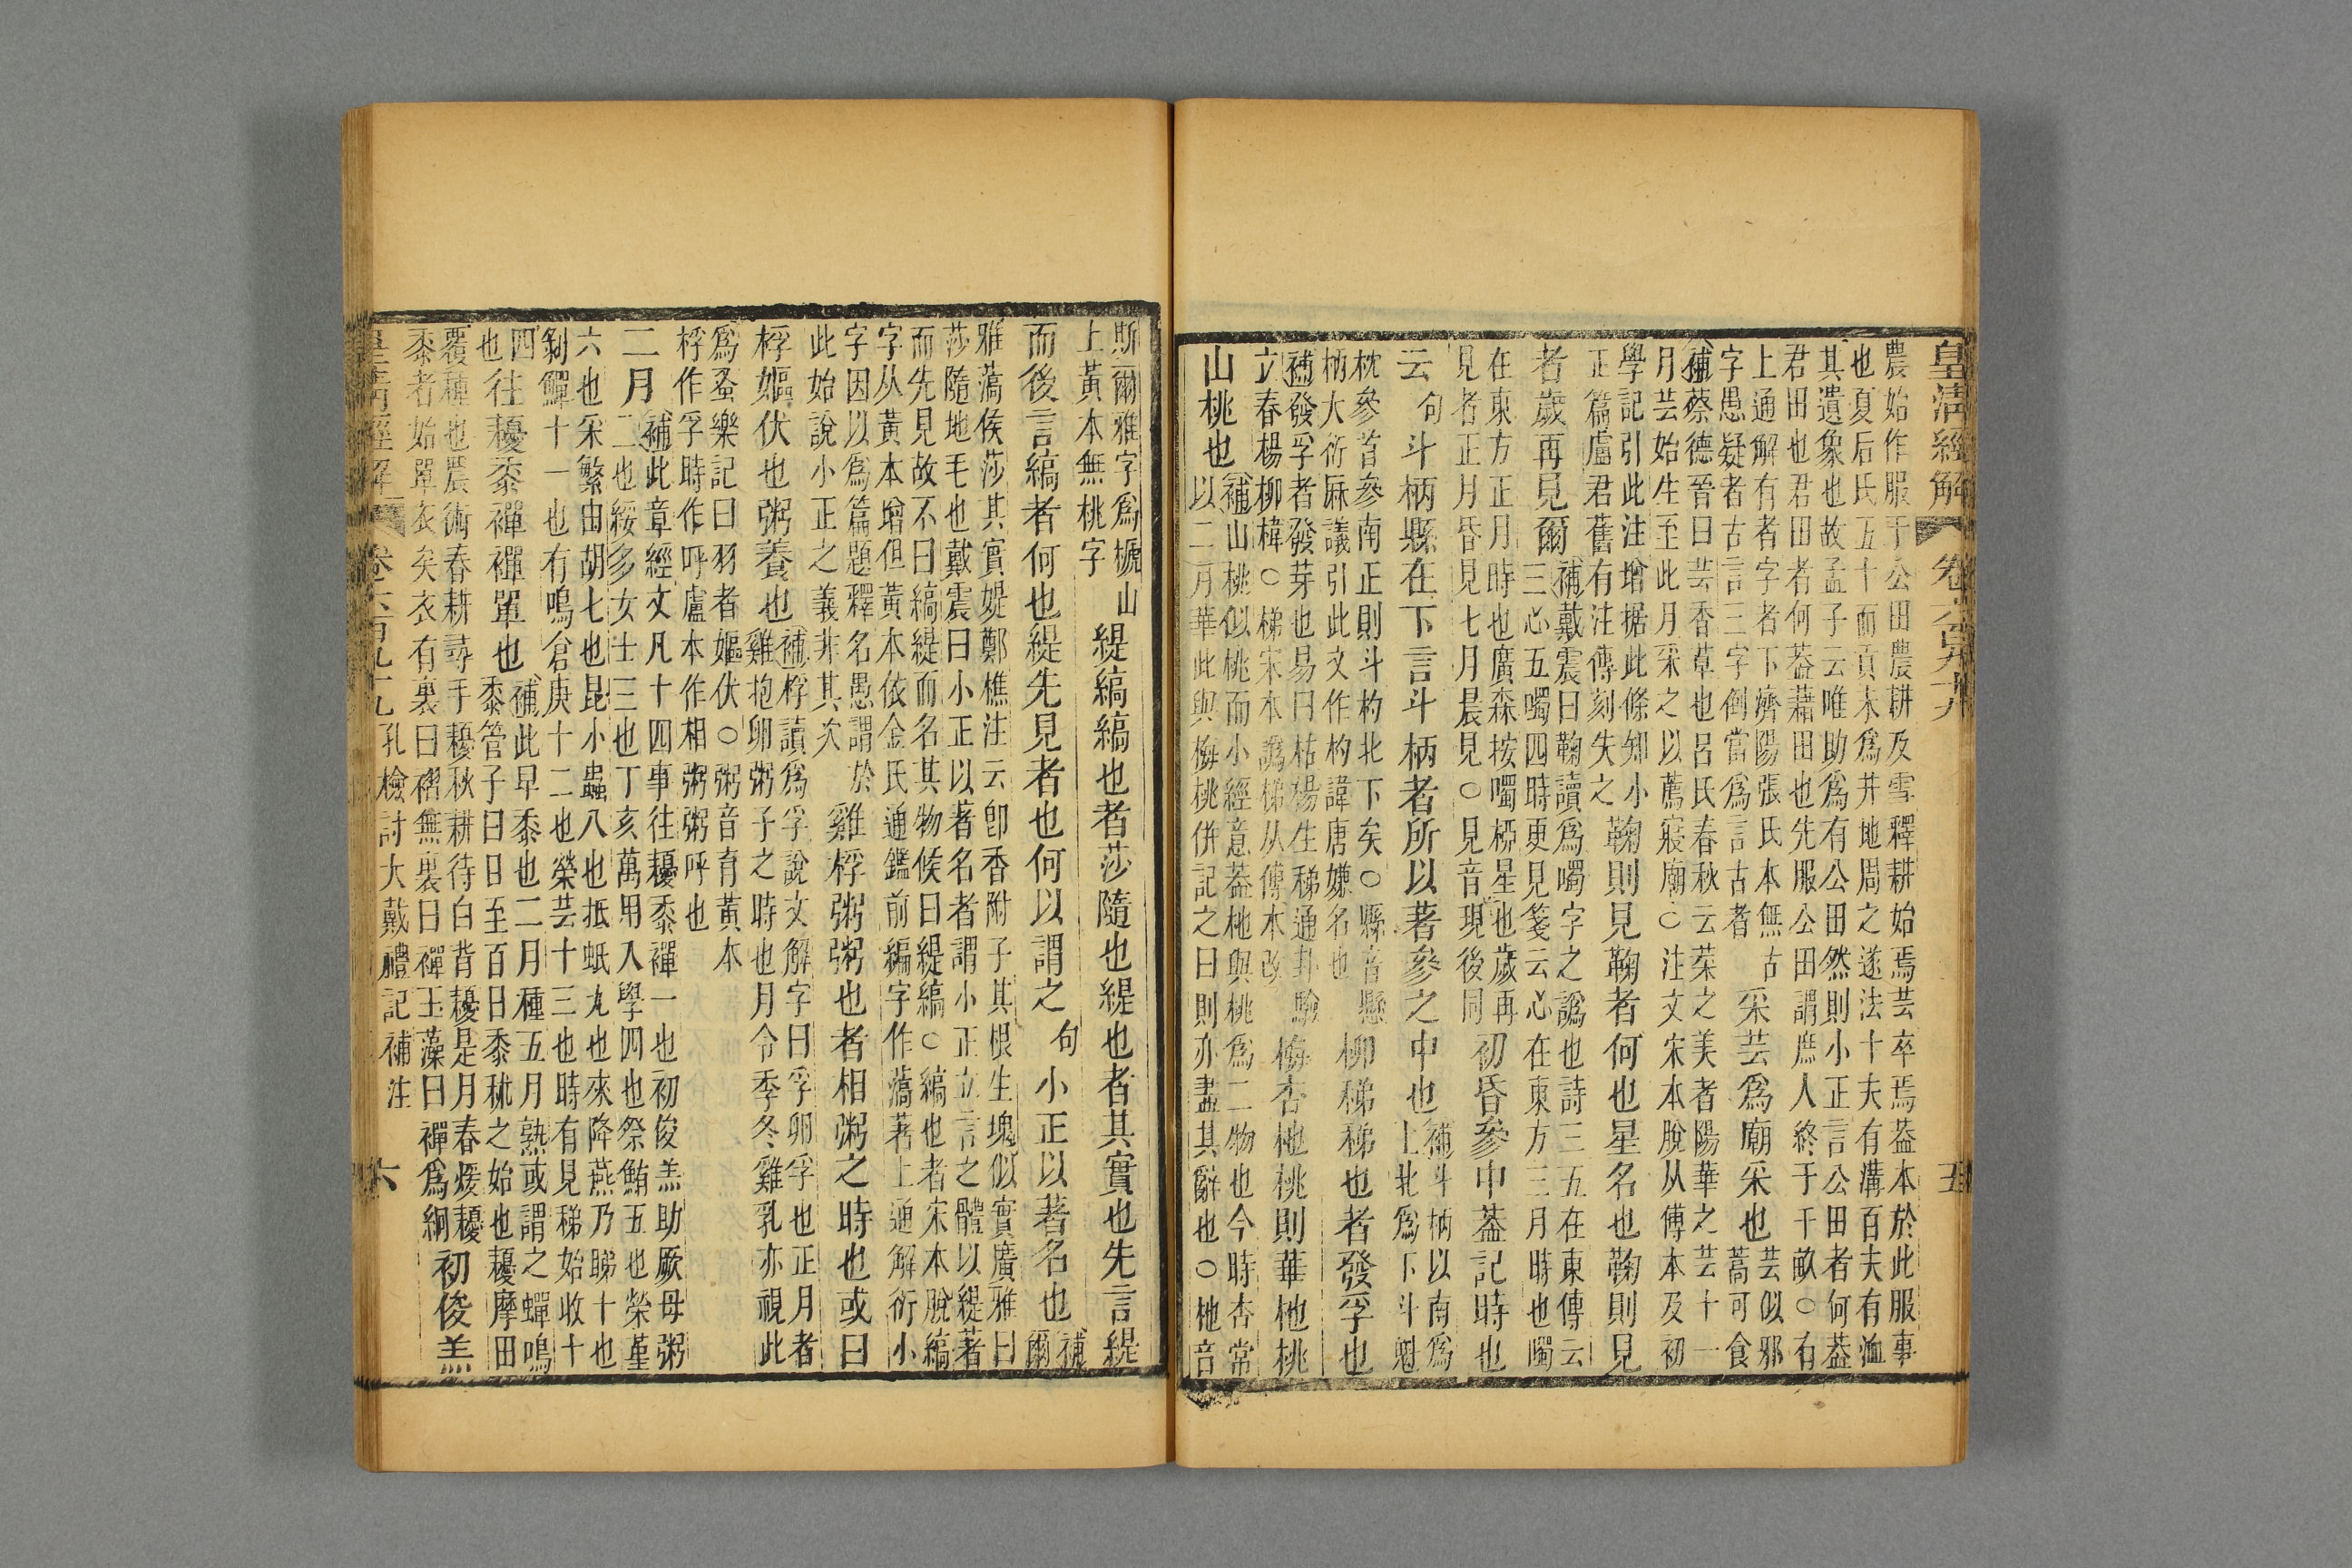 皇清經解 卷六百九十九 五
農始作服于公田農耕及雪釋耕始焉芸卒焉葢本於此服事
也夏后氏五十而貢未爲井地周之遂法十夫有溝百夫有洫
其遺象也故孟子云唯助爲有公田然則小正言公田者何葢
君田也君田者何葢藉田也先服公田謂庶人終于千畝○有
上通解有者字者下濟陽張氏本無古
字愚疑者古言三字倒當爲言古者
采芸爲廟采也
芸似邪
蒿可食
補蔡德晉曰芸香草也呂氏春秋云菜之美者陽華之芸十一
月芸始生至此月采之以薦寢廟○注文宋本脫从傅本及初
學記引此注增据此條知小
正篇盧君舊有注傳刻失之
鞠則見鞠者何也星名也鞠則見
者歲再見爾
補戴震曰鞠讀爲噣字之譌也詩三五在東傳云
三心五噣四時更見箋云心在東方三月時也噣
在東方正月時也廣森按噣桺星也歲再
見者正月昏見七月晨見○見音現後同
初昏參中葢記時也
云句斗柄縣在下言斗柄者所以著參之中也
補斗柄以南爲
上北爲下斗魁
枕參首參南正則斗杓北下矣○縣音懸
柄大衍厤議引此文作杓諱唐嫌名也
柳稊稊也者發孚也
補發孚者發芽也易曰枯楊生稊通卦驗
立春楊柳樟○稊宋本譌梯从傅本改
梅杏杝桃則華杝桃
山桃也
補山桃似桃而小經意葢杝與桃爲二物也今時杏常
以二月華此與梅桃併記之曰則亦盡其辭也○杝音
斯爾雅字爲榹山
上黃本無桃字
緹縞縞也者莎隨也緹也者其實也先言緹
而後言縞者何也緹先見者也何以謂之句小正以著名也
補
爾
雅薃侯莎其實媞鄭樵注云卽香附子其根生塊似實廣雅曰
莎隨地毛也戴震曰小正以著名者謂小正立言之體以緹著
而先見故不曰縞緹而名其物候曰緹縞○縞也者宋本脫縞
字从黃本增但黃本依金氏通鑑前編字作薃著上通解衍小
字因以爲篇題釋名愚謂於
此始說小正之義非其次
雞桴粥粥也者相粥之時也或曰
桴嫗伏也粥養也
補桴讀爲孚說文解字曰孚卵孚也正月者
雞抱卵粥子之時也月令季冬雞乳亦視此
爲蚤樂記曰羽者嫗伏○粥音育黃本
桴作孚時作呼盧本作相粥粥呼也
二月
補此章經文凡十四事往耰黍禪一也初俊羔助厥母粥
二也綏多女士三也丁亥萬用入學四也祭鮪五也榮堇
六也采繁由胡七也昆小蟲八也抵蚳九也來降燕乃睇十也
剝鱓十一也有鳴倉庚十二也榮芸十三也時有見稊始收十
四也往耰黍禪禪單也
補此早黍也二月種五月熟或謂之蟬鳴
黍管子曰日至百日黍秫之始也耰摩田
覆種也農術春耕尋手耰秋耕待白背耰是月春煖耰
黍者始單衣矣衣有裏曰褶無裏曰禪玉藻曰禪爲絅
初俊羔
皇淸經解 卷六百九十九 孔檢討大戴禮記補注 六